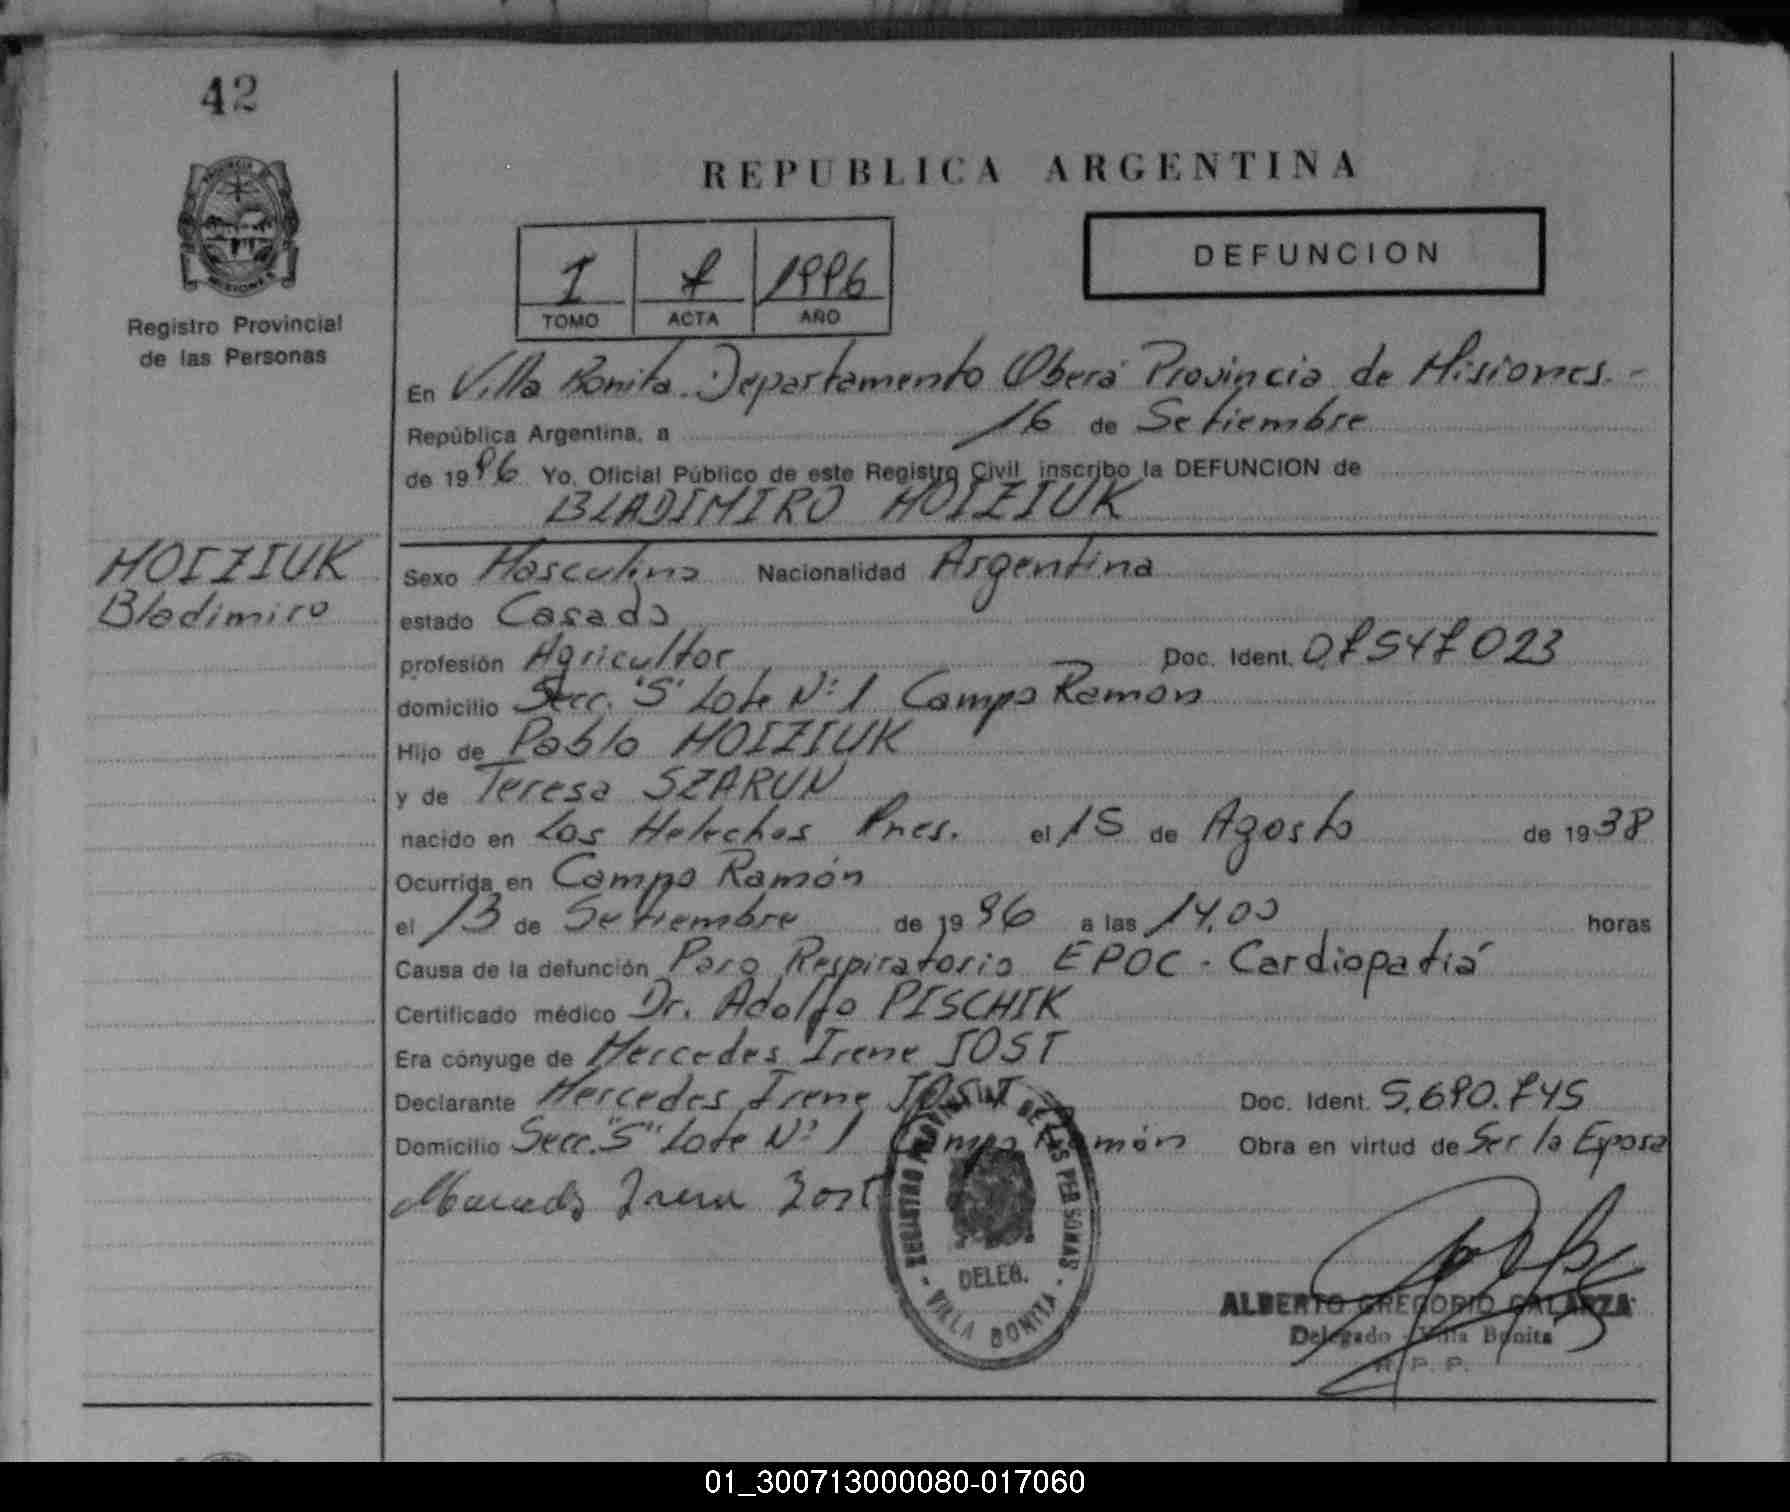 42
REPUBLICA ARGENTINA
DEFUNCION
I 7 1996
TOMO ACTA AÑO
Registro Provincial
de las Personas
En Villa Bonita. Departamento Oberá Provincia de Misiones.-
República Argentina, a 16 de Setiembre
de 1996 Yo, Oficial Público de este Registro Civil, inscribo la DEFUNCION de
BLADIMIRO MOIZIUK
MOIZIUK
Bladimiro
Sexo Masculino Nacionalidad Argentina
estado Casado
profesión Agricultor Doc. Ident. 07547023
domicilio Secc. "S" Lote Nº 1 Campo Ramón
Hijo de Pablo MOIZIUK
y de Teresa SZARUN
nacido en Los Helechos Mnes. el 15 de Agosto de 1938
Ocurrida en Campo Ramón
el 13 de Setiembre de 1996 a las 14,00 horas
Causa de la defunción Paro Respiratorio EPOC - Cardiopatiá
Certificado médico Dr. Adolfo PISCHIK
Era cónyuge de Mercedes Irene JOST
Declarante Mercedes Irene JOST Doc. Ident. 5.690.745
Domicilio Secc. "S" Lote Nº 1 Campo Ramón Obra en virtud de Ser la Esposa
Mercedes Irene Jost
REGISTRO PROVINCIAL DE LAS PERSONAS
DELEG.
- VILLA BONITA -
ALBERTO GREGORIO GALARZA
Delegado - Villa Bonita
R. P. P.
01_300713000080-017060